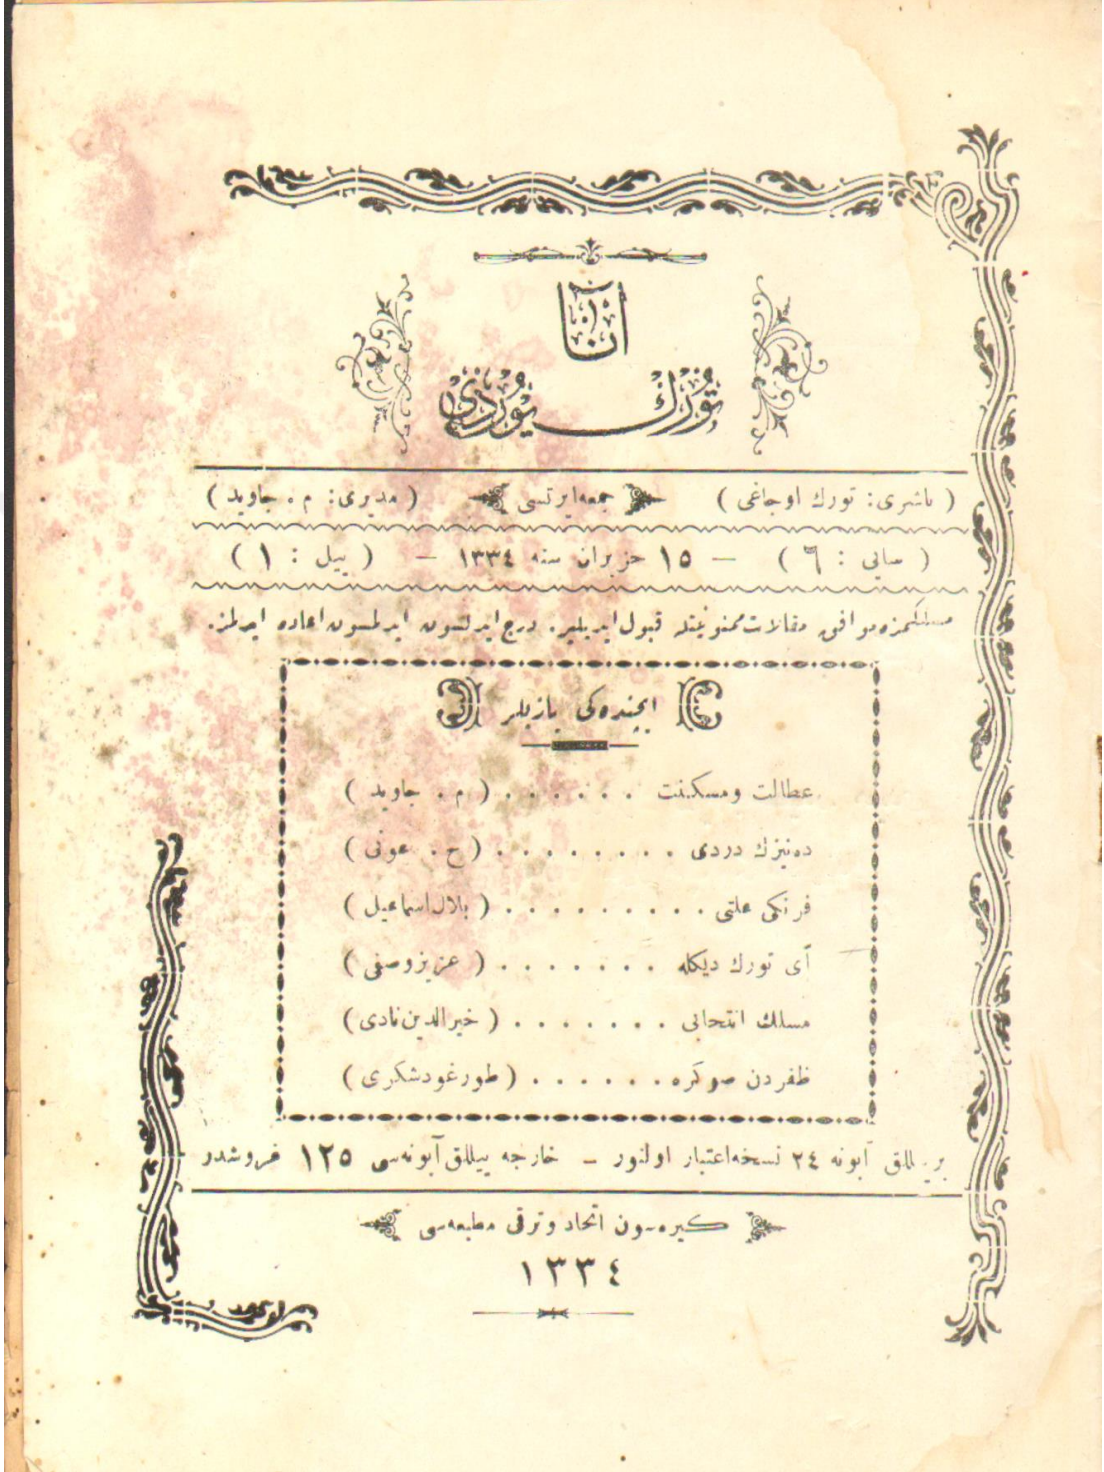 آنا
تورك يوردى
( ناشرى: تورك اوجاغى ) جمعه ايرتسى ( مديرى: م. جاويد )
( صايى : ٦ ) — ١٥ حزيران سنه ١٣٣٤ — ( ييل : ١ )
مسلكمزه موافق مقالات ممنونيتله قبول ايديلير. درج ايدلسون ايدلمسون اعاده ايدلمز.
ايچنده كى يازيلر
عطالت ومسكنت . . . . . . ( م . جاويد )
ده نيزك دردى . . . . . . . . ( ح . عونى )
فرنكى علتى . . . . . . . . . ( بلال اسماعيل )
آى تورك ديكله . . . . . . . ( عزيز وصفى )
مسلك انتخابى . . . . . . . ( خيرالدين نادى )
ظفردن صوكره . . . . . . ( طورغود شكرى )
بر ييللق آبونه ٢٤ نسخه اعتبار اولنور — خارجه ييللق آبونه سى ١٢٥ غروشدر
كيره سون اتحاد وترقى مطبعه سى
١٣٣٤